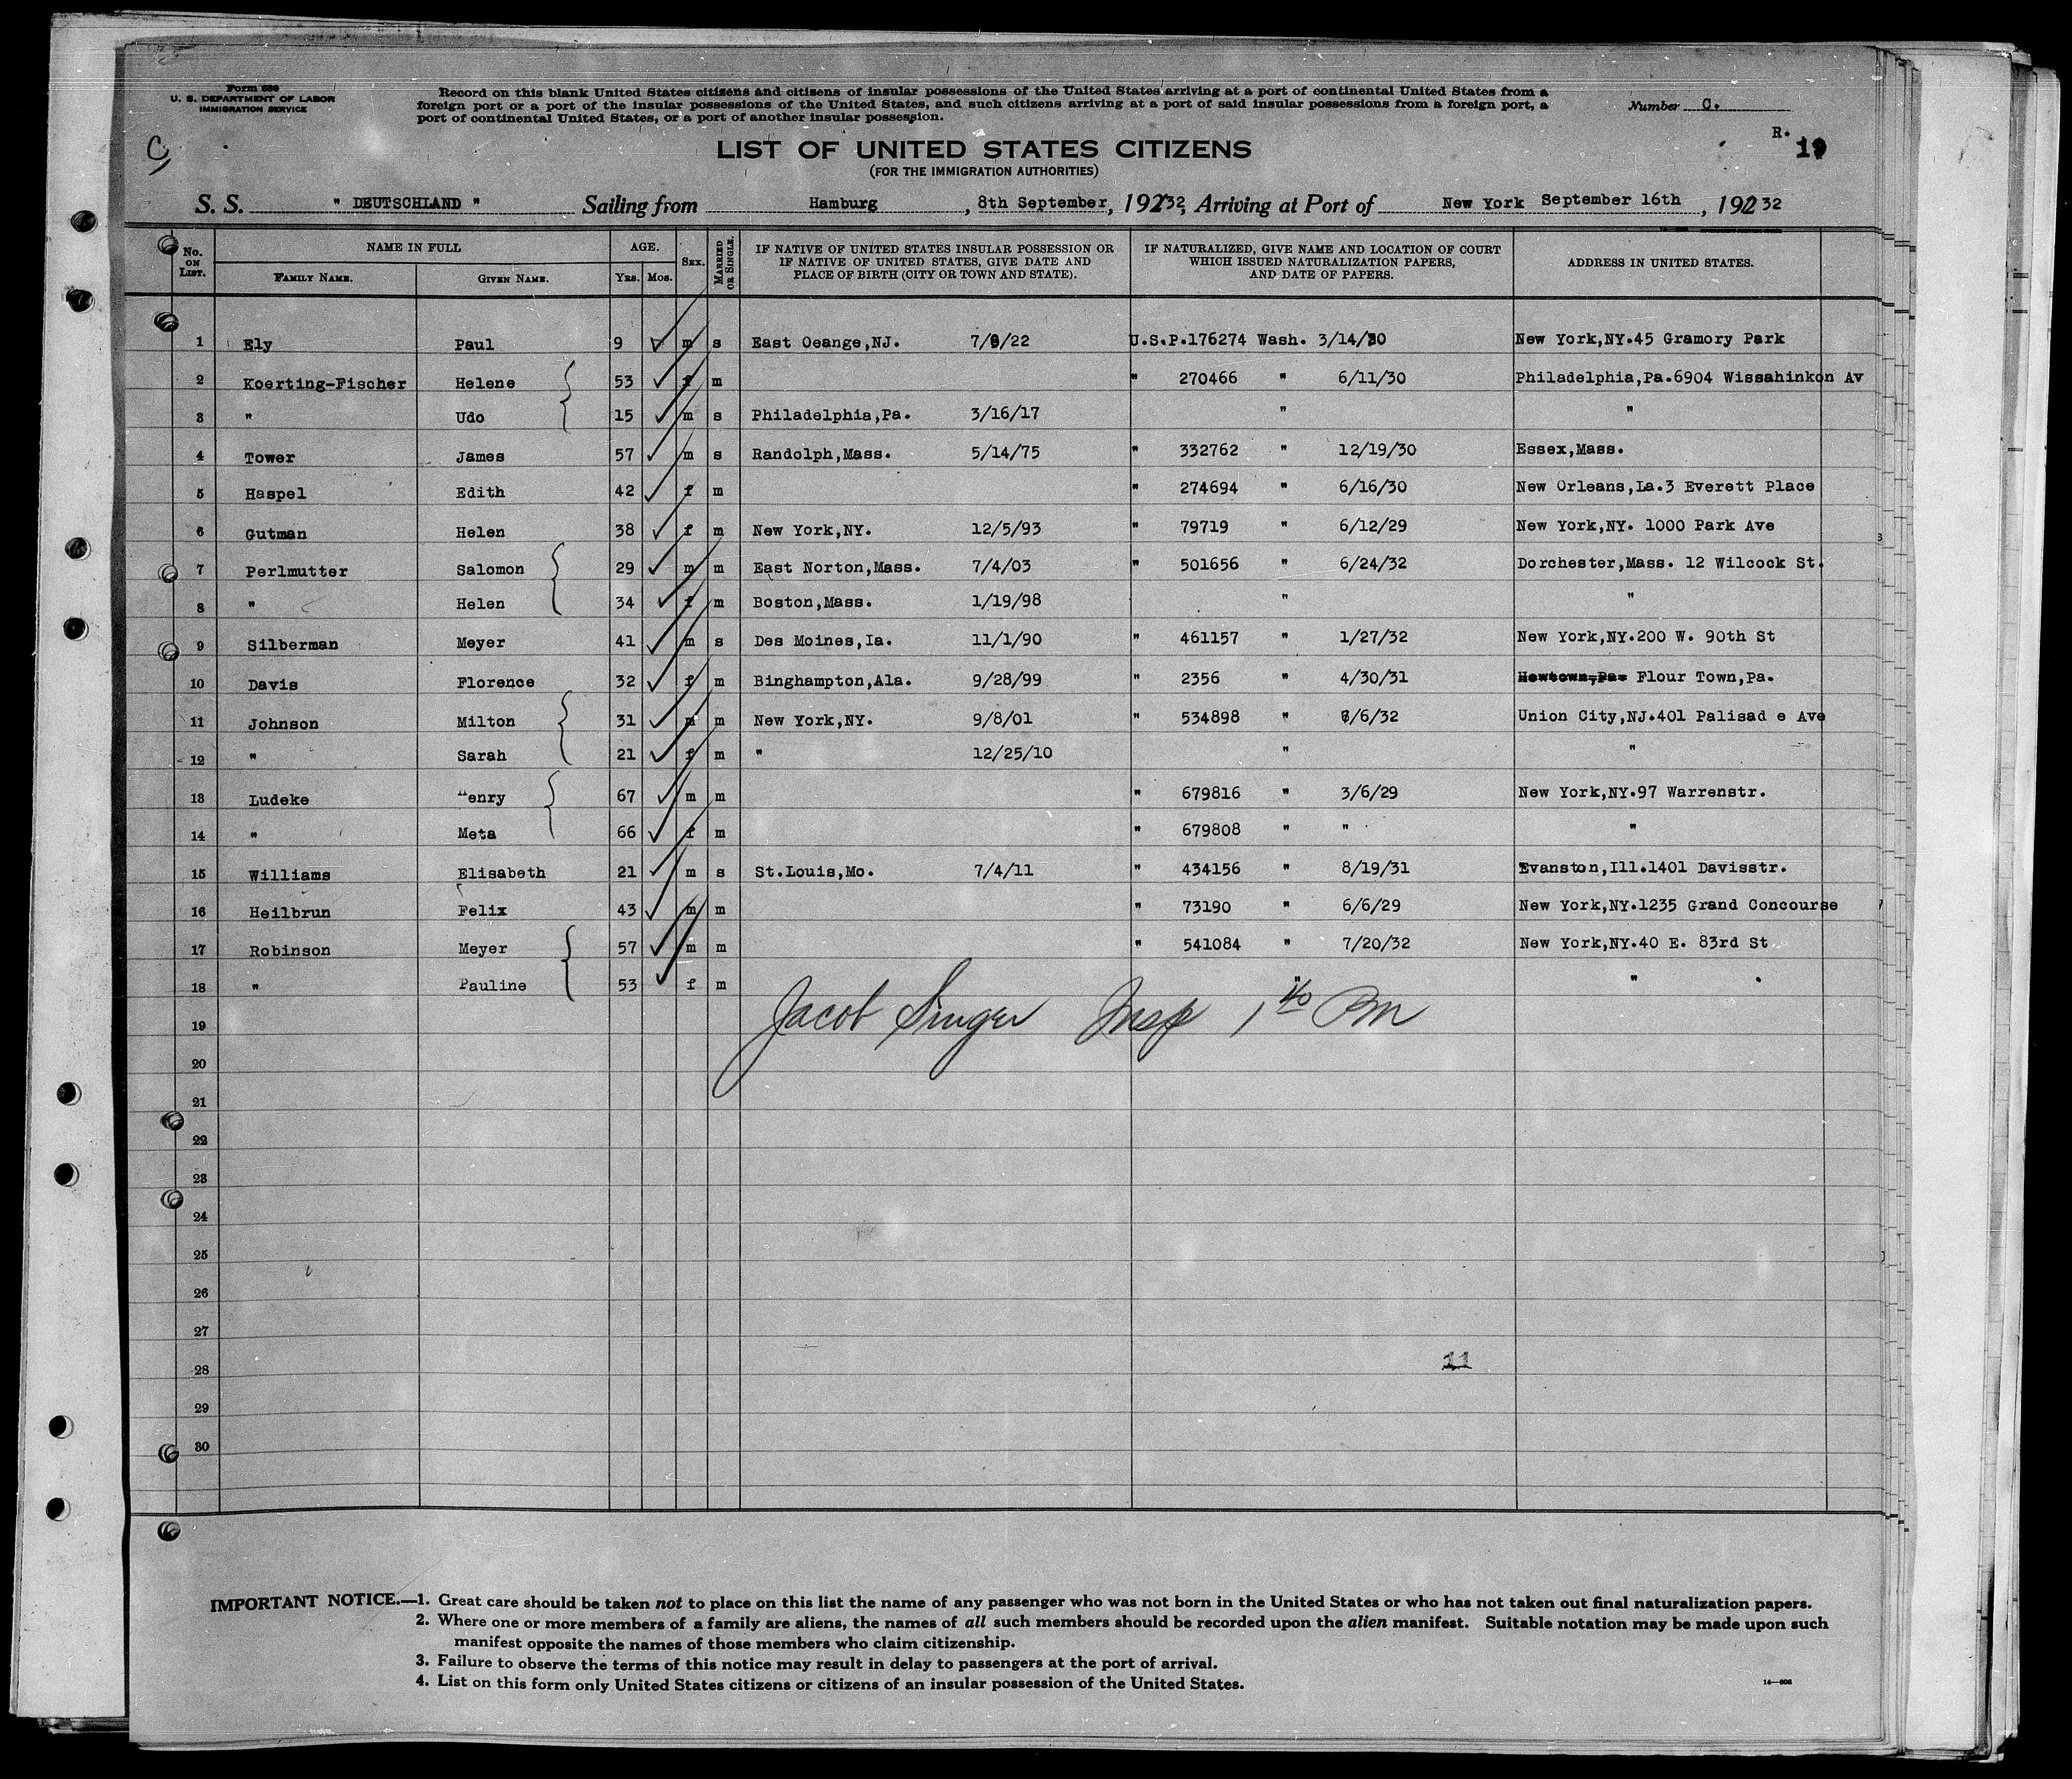 Form 630
U. S. DEPARTMENT OF LABOR
IMMIGRATION SERVICE
Record on this blank United States citizens and citizens of insular possessions of the United States arriving at a port of continental United States from a
foreign port or a port of the insular possessions of the United States, and such citizens arriving at a port of said insular possessions from a foreign port, a
port of continental United States, or a port of another insular possession.
Number C.
C
R. 19
LIST OF UNITED STATES CITIZENS
(FOR THE IMMIGRATION AUTHORITIES)
S. S. " DEUTSCHLAND " Sailing from Hamburg, 8th September, 19232, Arriving at Port of New York September 16th, 19232
No. ON LIST. NAME IN FULL AGE. SEX. MARRIED OR SINGLE. IF NATIVE OF UNITED STATES INSULAR POSSESSION OR IF NATIVE OF UNITED STATES, GIVE DATE AND PLACE OF BIRTH (CITY OR TOWN AND STATE). IF NATURALIZED, GIVE NAME AND LOCATION OF COURT WHICH ISSUED NATURALIZATION PAPERS, AND DATE OF PAPERS. ADDRESS IN UNITED STATES.
FAMILY NAME. GIVEN NAME. YRS. MOS.
1 Ely Paul 9 m s East Oeange,NJ. 7/9/22 U.S.P.176274 Wash. 3/14/30 New York,NY.45 Gramory Park
2 Koerting-Fischer Helene 53 f m " 270466 " 6/11/30 Philadelphia,Pa.6904 Wissahinkon Av
3 " Udo 15 m s Philadelphia,Pa. 3/16/17 " "
4 Tower James 57 m s Randolph,Mass. 5/14/75 " 332762 " 12/19/30 Essex,Mass.
5 Haspel Edith 42 f m " 274694 " 6/16/30 New Orleans,La.3 Everett Place
6 Gutman Helen 38 f m New York,NY. 12/5/93 " 79719 " 6/12/29 New York,NY. 1000 Park Ave
7 Perlmutter Salomon 29 m m East Norton,Mass. 7/4/03 " 501656 " 6/24/32 Dorchester,Mass. 12 Wilcock St.
8 " Helen 34 f m Boston,Mass. 1/19/98 " "
9 Silberman Meyer 41 m s Des Moines,Ia. 11/1/90 " 461157 " 1/27/32 New York,NY.200 W. 90th St
10 Davis Florence 32 f m Binghampton,Ala. 9/28/99 " 2356 " 4/30/31 Flour Town,Pa.
11 Johnson Milton 31 m m New York,NY. 9/8/01 " 534898 " /6/32 Union City,NJ.401 Palisad e Ave
12 " Sarah 21 f m " 12/25/10 " "
13 Ludeke Henry 67 m m " 679816 " 3/6/29 New York,NY.97 Warrenstr.
14 " Meta 66 f m " 679808 " " "
15 Williams Elisabeth 21 m s St.Louis,Mo. 7/4/11 " 434156 " 8/19/31 Evanston,Ill.1401 Davisstr.
16 Heilbrun Felix 43 m m " 73190 " 6/6/29 New York,NY.1235 Grand Concourse
17 Robinson Meyer 57 m m " 541084 " 7/20/32 New York,NY.40 E. 83rd St
18 " Pauline 53 f m " "
19 Jacob Singer Insp 1 40 PM
20
21
22
23
24
25
26
27
28 11
29
30
IMPORTANT NOTICE.—1. Great care should be taken not to place on this list the name of any passenger who was not born in the United States or who has not taken out final naturalization papers.
2. Where one or more members of a family are aliens, the names of all such members should be recorded upon the alien manifest. Suitable notation may be made upon such
manifest opposite the names of those members who claim citizenship.
3. Failure to observe the terms of this notice may result in delay to passengers at the port of arrival.
4. List on this form only United States citizens or citizens of an insular possession of the United States.